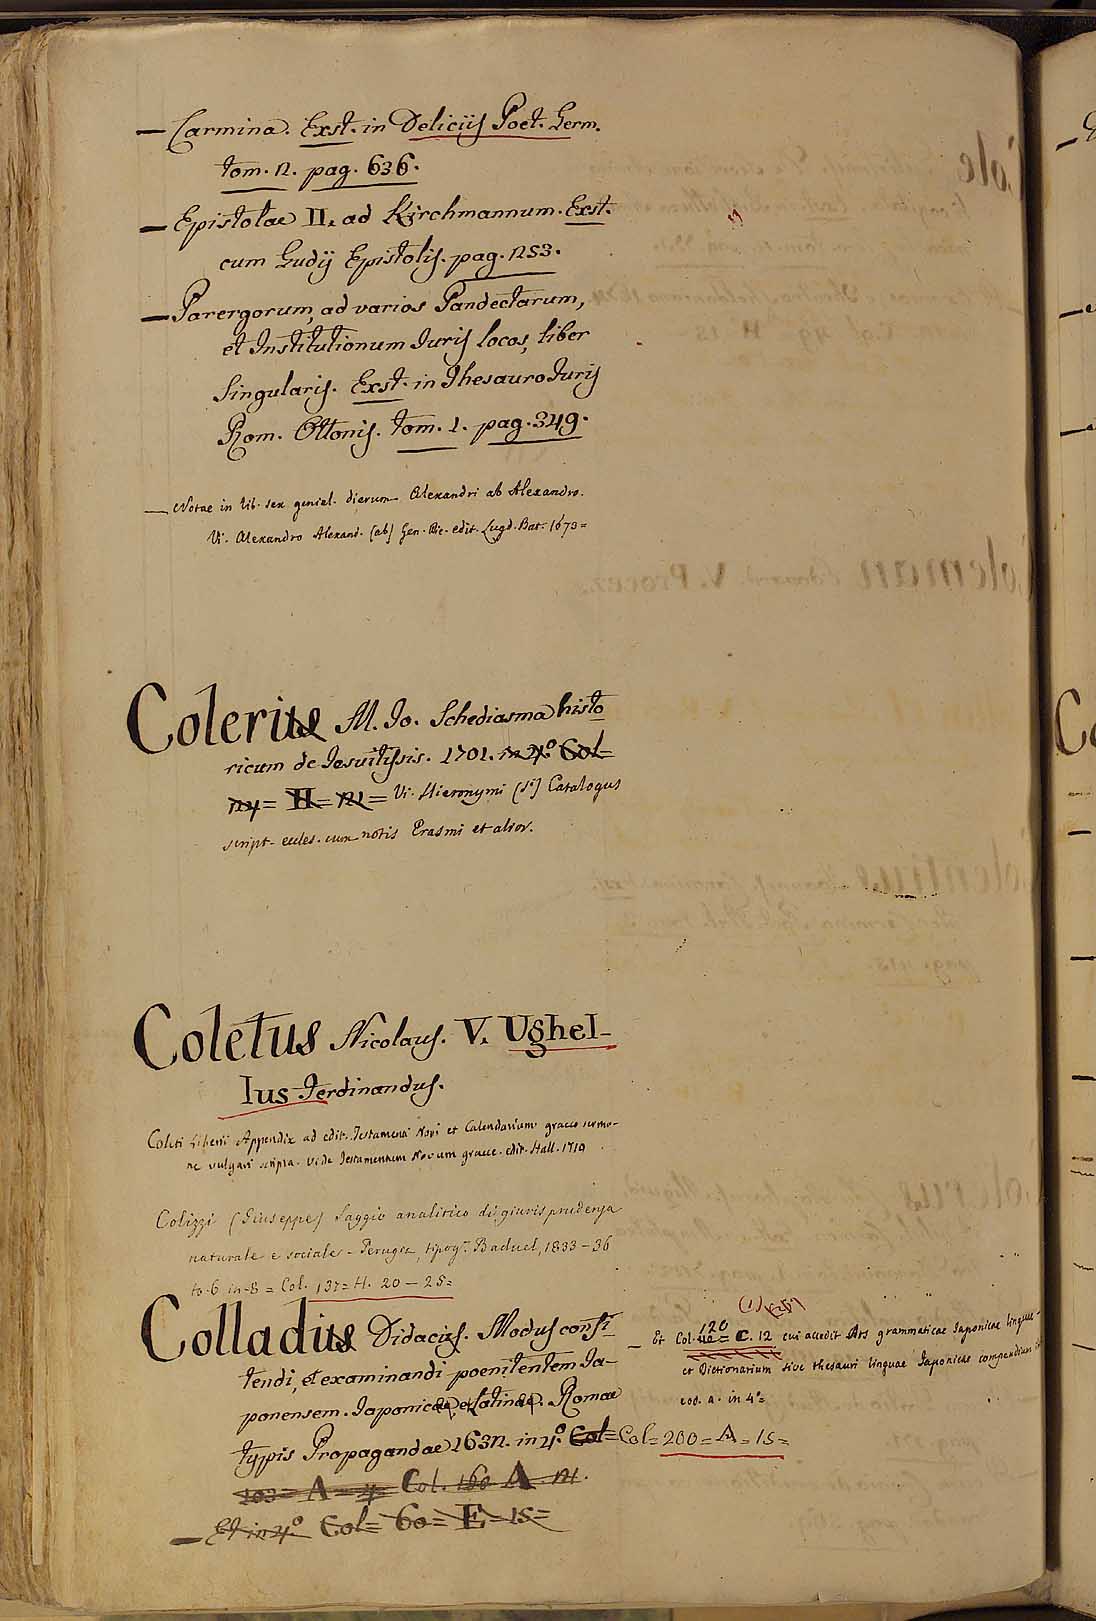 — Carmina. Exst. in Deliciis Poet. Germ.
tom. 2. pag. 636.
— Epistolae II. ad Kirchmannum. Exst.
cum Gudij Epistolis. pag. 253.
— Parergorum, ad varios Pandectarum,
et Institutionum Juris locos, liber
singularis. Exst. in Thesauro Juris
Rom. Ottonis. tom. 1. pag. 349.
— Notae in lib. sex genial. dierum Alexandri ab Alexandro.
Vi. Alexandro Alexand. (ab) Gen. Die. edit. Lugd. Bat. 1673=
Colerus M. Jo. Schediasma histo
ricum de Jesuitissis. 1701. in 4º Col=
24= H= 21= Vi. Hieronymi (Si) Catalogus
script. eccles. cum notis Erasmi et alior.
Coletus Nicolaus. V. Ughel-
lus Ferdinandus.
Coleti Appendix ad edit. Testamenti Novi et Calendarium graeco sermo-
ne vulgari scripta. vide Testamentum Novum graece. edit. Hall. 1710
Colizzi (Giuseppe) Saggio analitico di giurisprudenza
naturale e sociale - Perugia, tipog. Baduel, 1833-36
to. 6 in-8 = Col. 137= H. 20-25=
Colladus Didacus. Modus confi-
tendi, et examinandi poenitentem Ja-
ponensem. Japonice, et Latine. Romae
typis Propagandae 1632. in 4º Col= Col= 200= A= 15=
103= A= 4= Col. 160 A. 21.
— Et in 4º Col= 60= E= 15=
— Et Col. 120 = C. 12 cui accedit Ars grammaticae Japonicae linguae
et Dictionarium sive thesauri linguae Japonicae compendium
eod. a. in 4º=